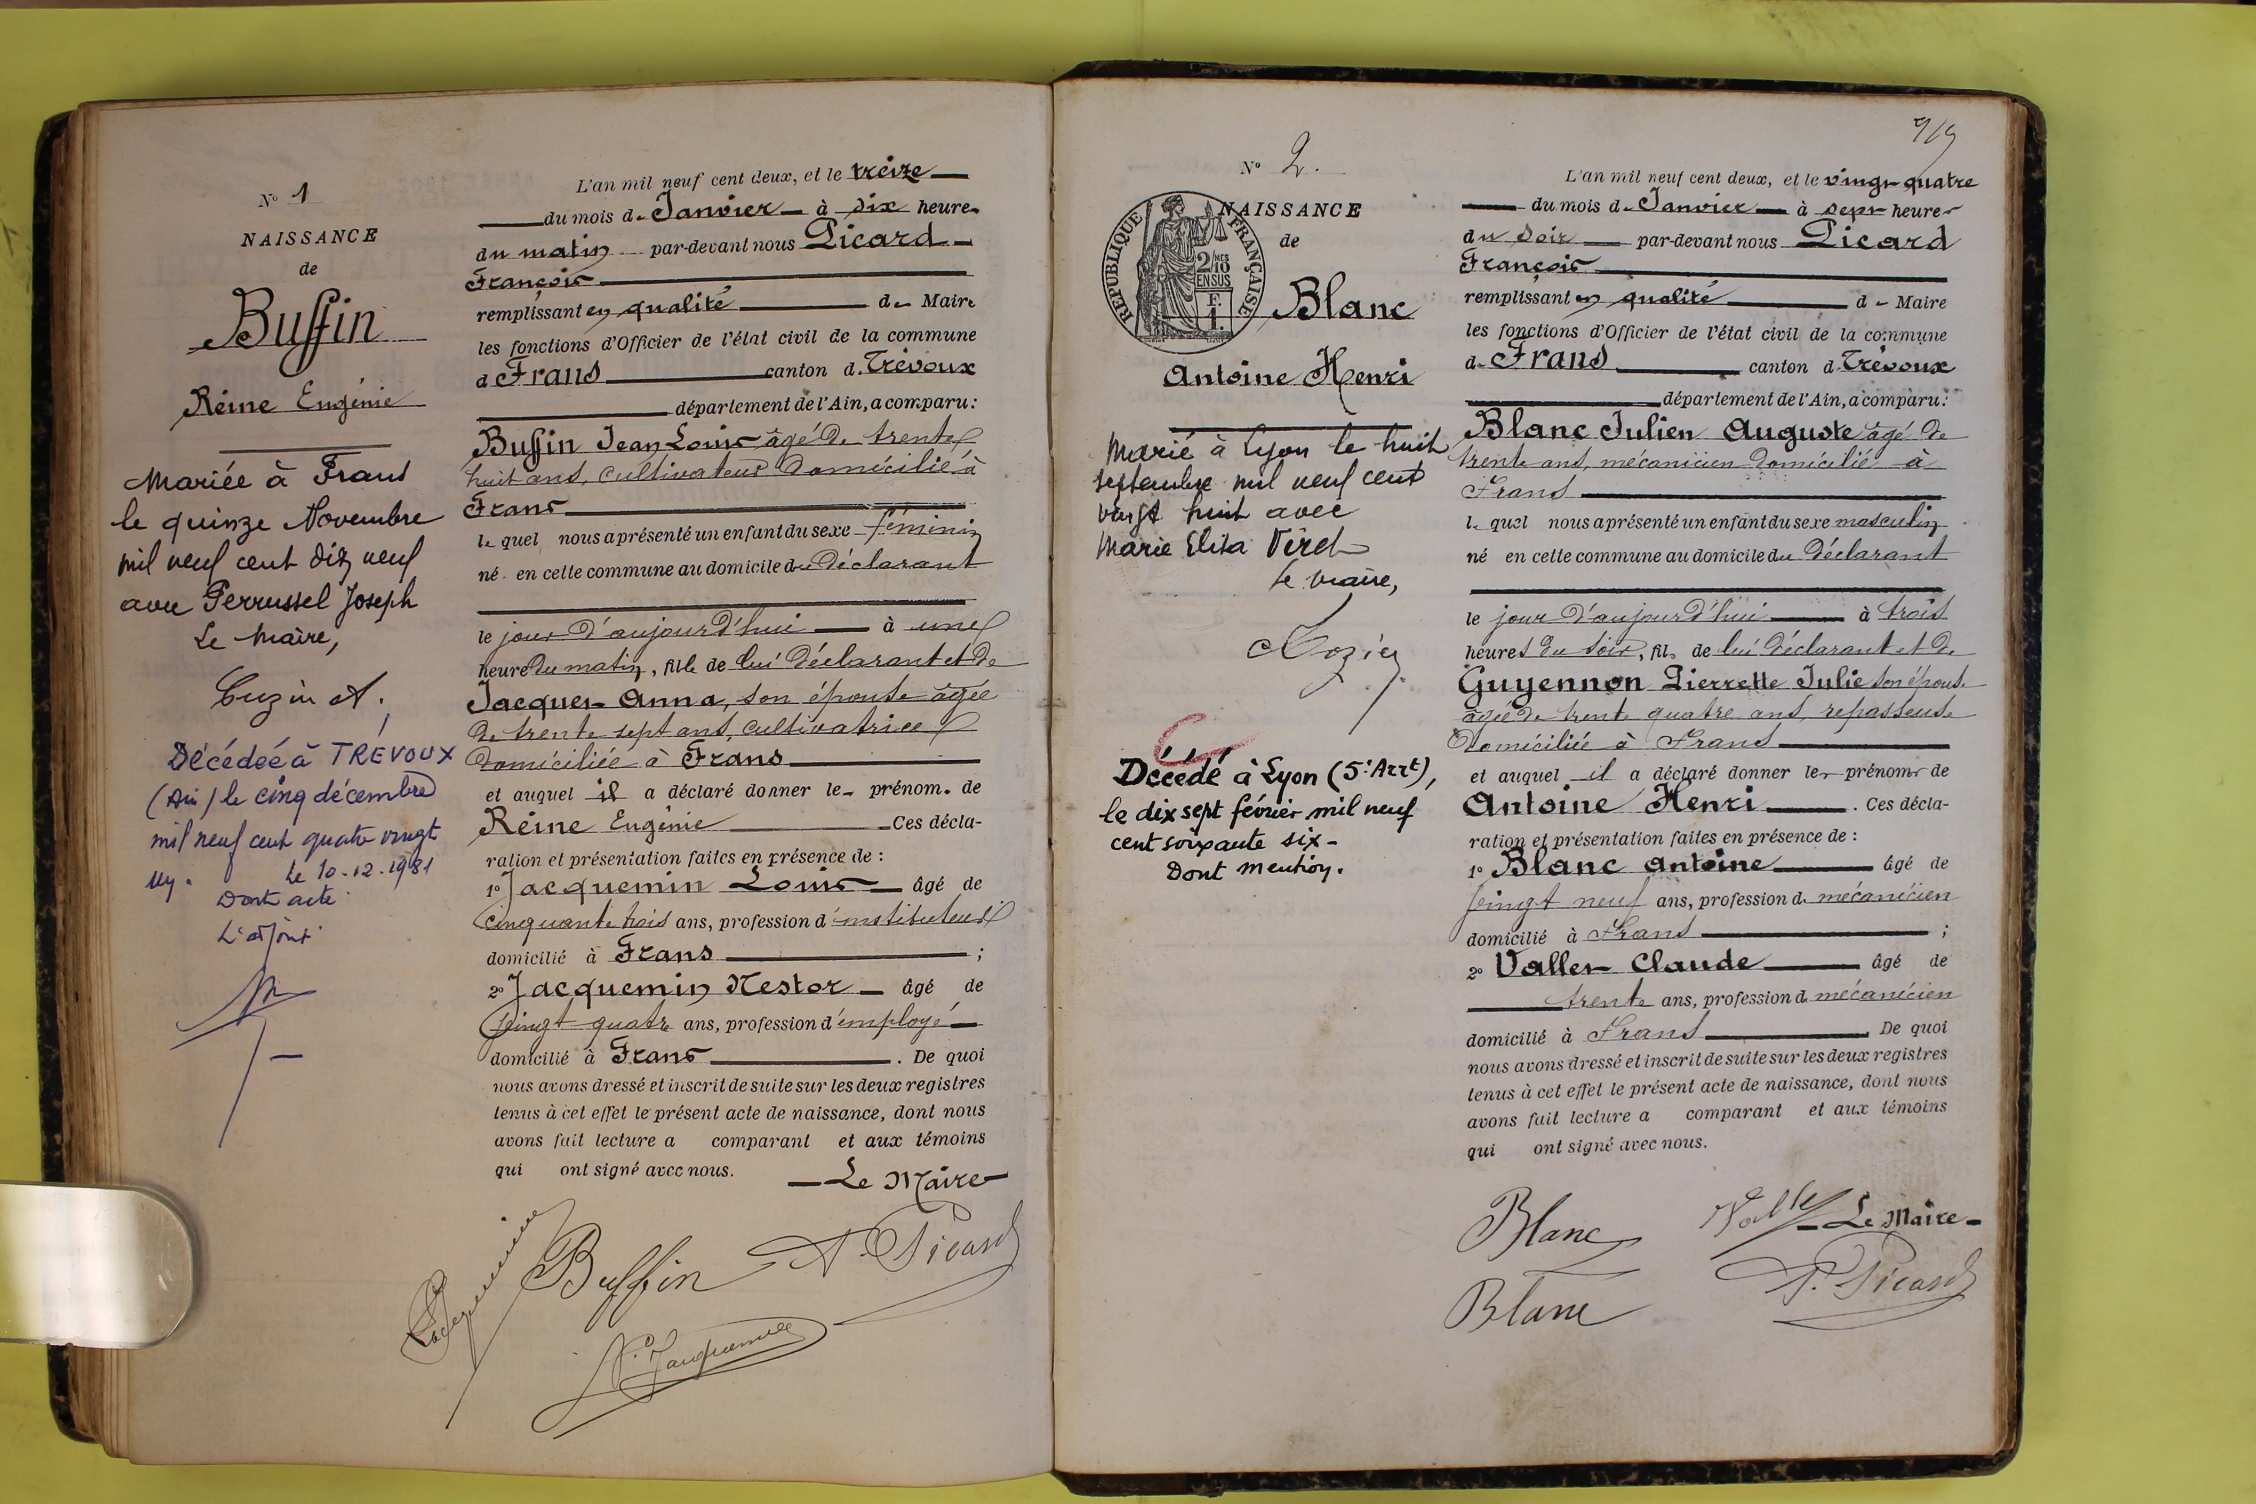 N° 1
NAISSANCE
de
Buffin
Reine Eugénie
Mariée à Frans
le quinze Novembre
mil neuf cent dix neuf
avec Perrussel Joseph
Le Maire,
Cuzin A.
Décédée à TRÉVOUX
(Ain) le cinq décembre
mil neuf cent quatre vingt
un. Le 10.12.1981
Dont acte
L'adjoint
L'an mil neuf cent deux, et le treize
du mois de Janvier à dix heures
du matin par-devant nous Picard
François
remplissant en qualité de Maire
les fonctions d'Officier de l'état civil de la commune
d Frans canton d. Trévoux
département de l'Ain, a comparu:
Buffin Jean Louis âgé de trente
huit ans, cultivateur domicilié à
Frans
le quel nous a présenté un enfant du sexe féminin
né en cette commune au domicile du déclarant
le jour d'aujourd'hui à une
heure du matin, fille de lui déclarant et de
Jacques Anna, son épouse âgée
de trente sept ans, cultivatrice
domiciliée à Frans
et auquel il a déclaré donner les prénoms de
Reine Eugénie Ces décla-
ration et présentation faites en présence de :
1° Jacquemin Louis âgé de
cinquante trois ans, profession d'instituteur
domicilié à Frans ;
2° Jacquemin Nestor âgé de
vingt quatre ans, profession d'employé
domicilié à Frans . De quoi
nous avons dressé et inscrit de suite sur les deux registres
tenus à cet effet le présent acte de naissance, dont nous
avons fait lecture a comparant et aux témoins
qui ont signé avec nous.
Le Maire
Jacquemin
Buffin
F. Picard
N. Jacquemin
N° 2.
NAISSANCE
de
RÉPUBLIQUE FRANÇAISE
2/10
EN SUS
Blanc
Antoine Henri
Marié à Lyon le huit
septembre mil neuf cent
vingt huit avec
Marie Elisa Viret
Le Maire,
Décédé à Lyon (5e Arrt),
le dix sept février mil neuf
cent soixante six -
Dont mention.
L'an mil neuf cent deux, et le vingt quatre
du mois de Janvier à sept heures
du soir par-devant nous Picard
François
remplissant en qualité de Maire
les fonctions d'Officier de l'état civil de la commune
de Frans canton d. Trévoux
département de l'Ain, a comparu:
Blanc Julien Auguste âgé de
trente ans, mécanicien domicilié à
Frans
le quel nous a présenté un enfant du sexe masculin
né en cette commune au domicile du déclarant
le jour d'aujourd'hui à trois
heures du soir, fils de lui déclarant et de
Guyennon Pierrette Julie son épouse
âgée de trente quatre ans, repasseuse
domiciliée à Frans
et auquel il a déclaré donner les prénoms de
Antoine Henri . Ces décla-
ration et présentation faites en présence de :
1° Blanc Antoine âgé de
vingt neuf ans, profession de mécanicien
domicilié à Frans ;
2° Valler Claude âgé de
trente ans, profession de mécanicien
domicilié à Frans . De quoi
nous avons dressé et inscrit de suite sur les deux registres
tenus à cet effet le présent acte de naissance, dont nous
avons fait lecture a comparant et aux témoins
qui ont signé avec nous.
Blanc
Le Maire
F. Picard
Blanc